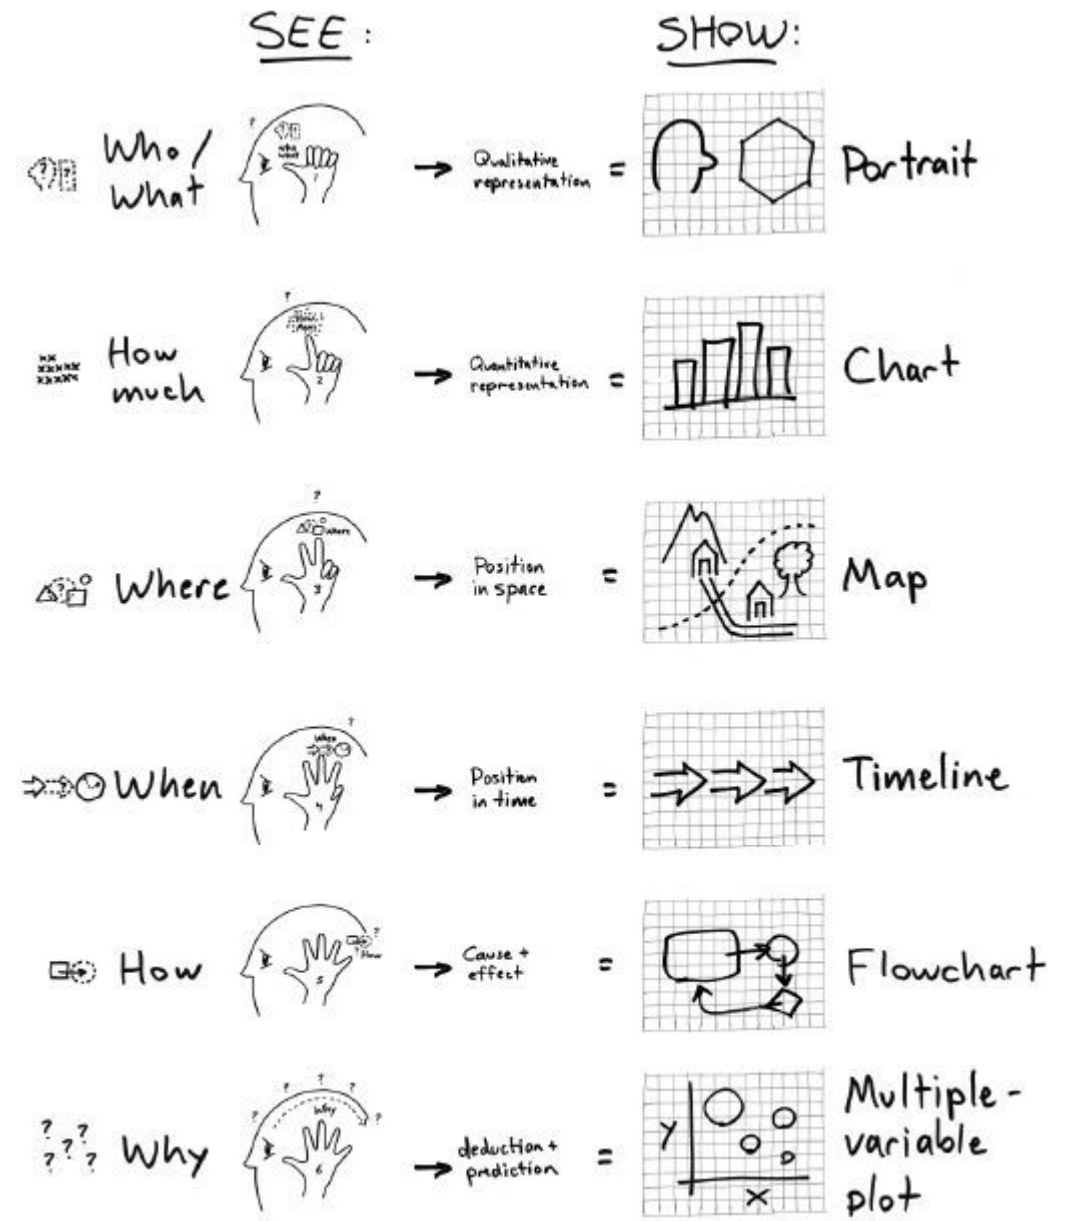 SEE:
SHOW:
? ?
Who/
What
?
?
Who
What
1
Qualitative
representation
=
Portrait
xx
xxxxx
xxxxx
How
much
?
2
Quantitative
representation
=
Chart
?
Where
?
Where
3
Position
in space
=
Map
?
When
?
When
?
4
Position
in time
=
Timeline
How
?
?
How
5
Cause +
effect
=
Flowchart
? ?
? ? ?
Why
? ? ? ? ?
Why
6
deduction +
prediction
=
y
x
Multiple-
variable
plot